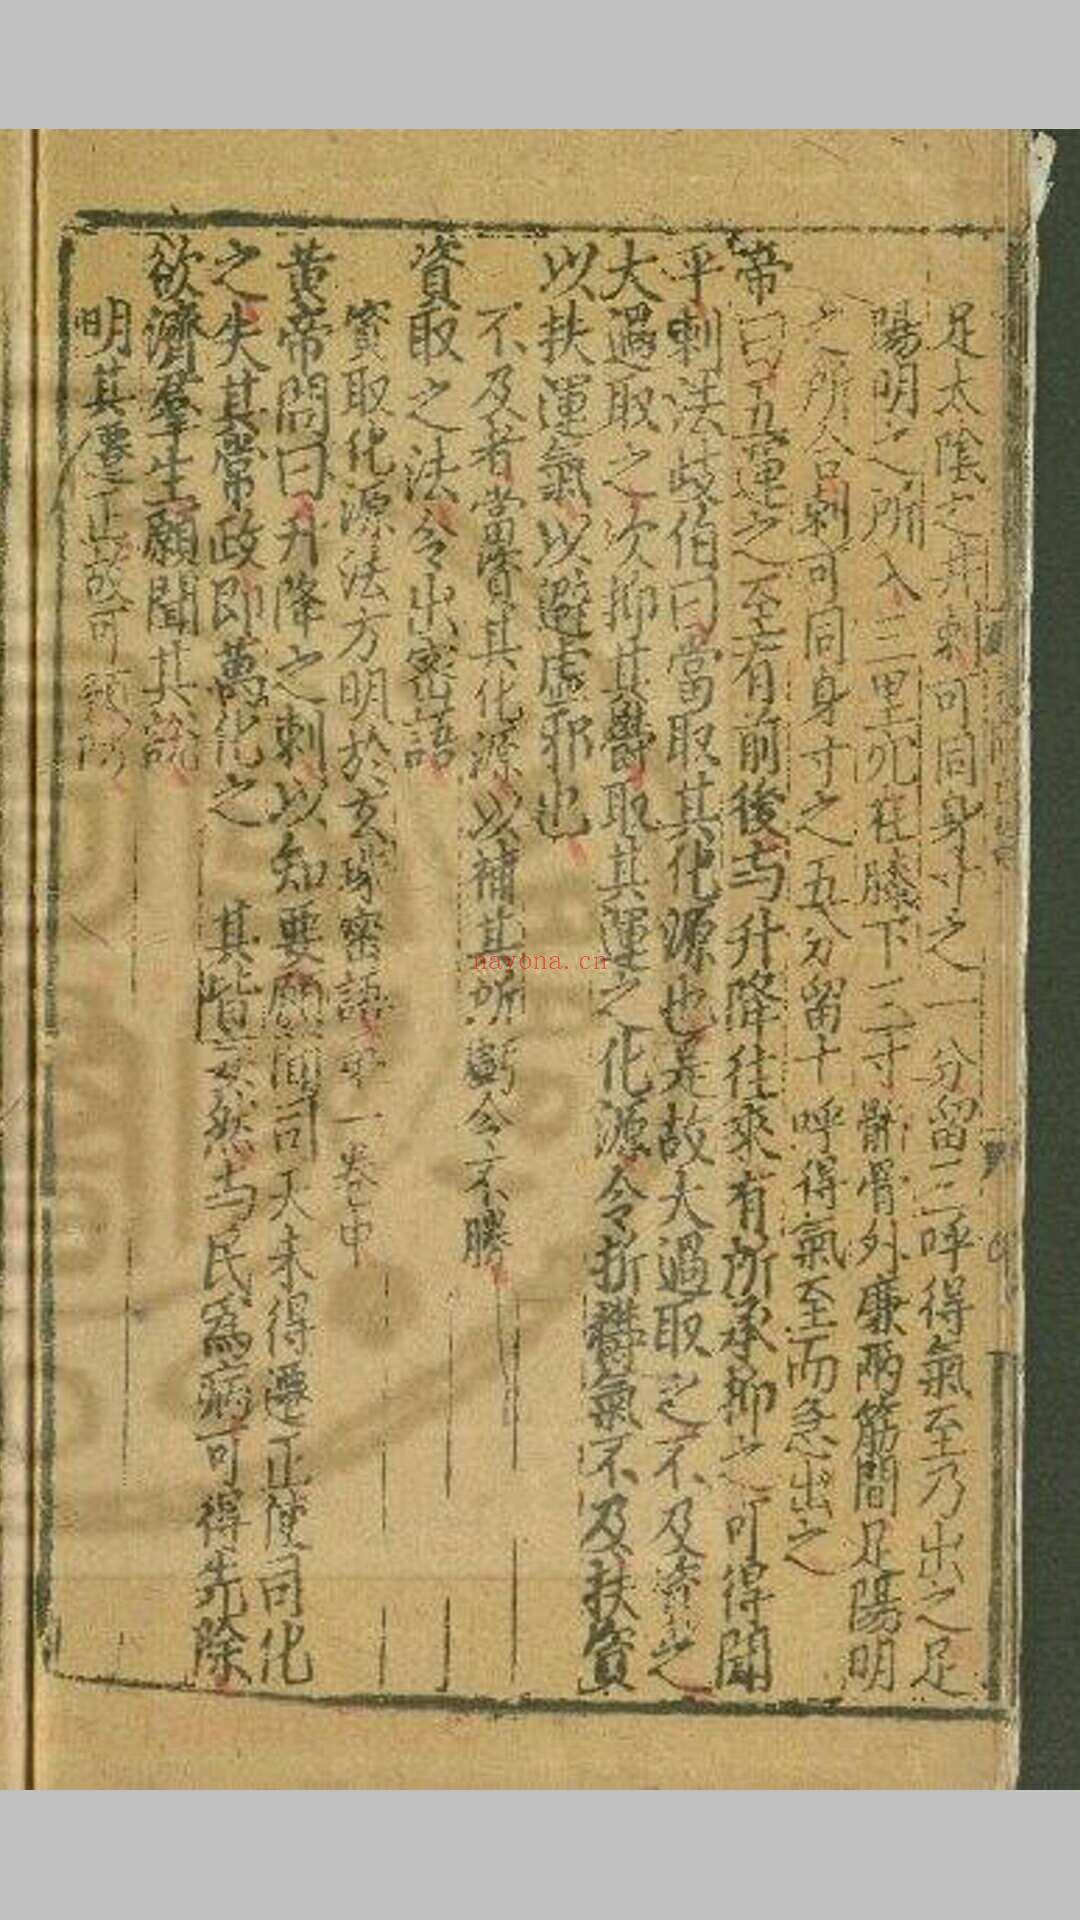 足太陰之井刺可同身寸之一分留三呼得氣至乃出之足
陽明之所入三里穴在膝下三寸骭骨外廉兩筋間足陽明
之所合刺可同身寸之五分留十呼得氣至而急出之
帝曰五運之至有前後与升降往來有所承抑之可得聞
乎刺法歧伯曰當取其化源也是故太過取之不及資之
大過取之次抑其鬱取其運之化源令折欝氣不及扶資
以扶運氣以避虛邪也
不及者當資其化源以補其所虧令不勝
資取之法令出密語
資取化源法方明於玄珠密語第一卷中
黃帝問曰升降之刺以知要願聞司天未得遷正使司化
之失其常政即萬化之 其皆妄然与民為病可得先除
欲濟羣生願聞其說
明其遷正
nayona.cn